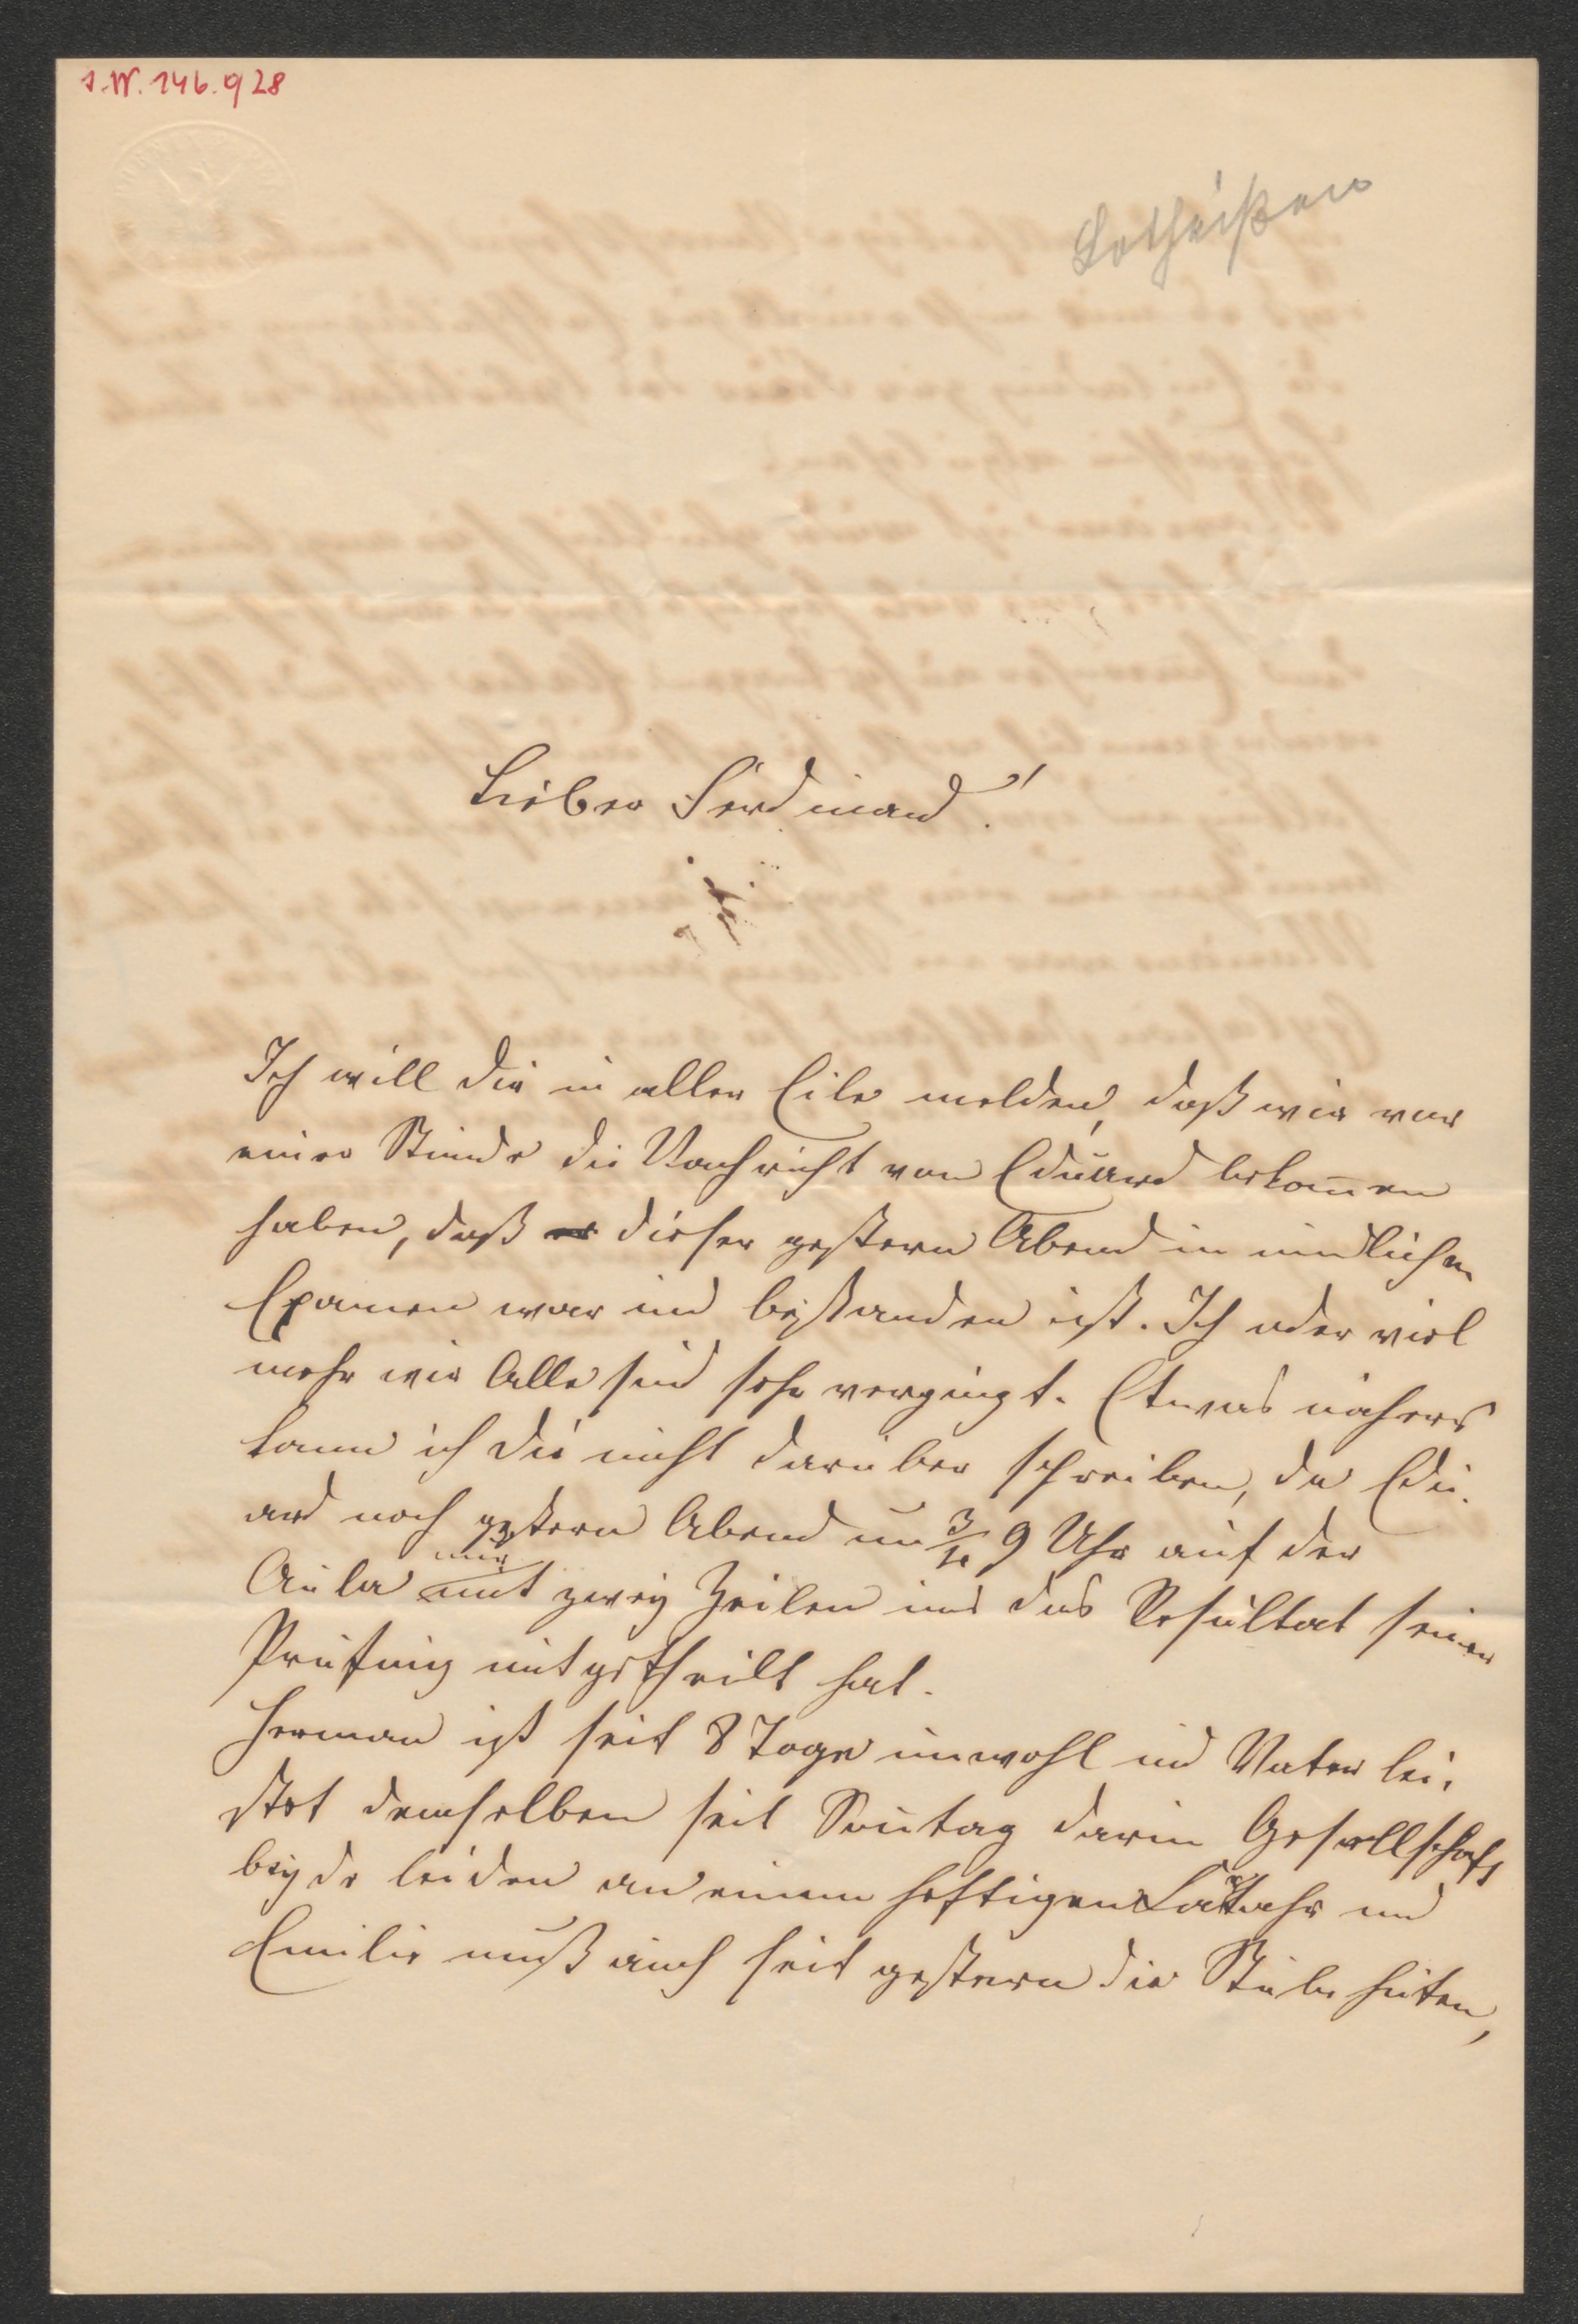 I.N. 146.928
Lotheißen
Lieber Ferdinand!
Ich will Dir in aller Eile melden, daß wir vor
einer Stunde die Nachricht von Eduard bekom̅en
haben, daß er dieser gestern Abend in mündlichen
Examen war und bestanden ist. Ich oder viel
mehr wir Alle sind sehr vergnügt. Etwas nähers
kann ich Dir nicht darüber schreiben, da Edu-
ard noch gestern Abend um 3/4 9 Uhr auf der
nur
Aula mit zwey Zeilen uns das Resultat seiner
Prüfung mitgetheilt hat.
Herman ist seit 8 Tage unwohl und Vater lei-
stet demselben seit Sontag darin Gesellschaft
beyde leiden an einem heftigen Katarhr und
Emilie muß auch seit gestern die Stube hüten,